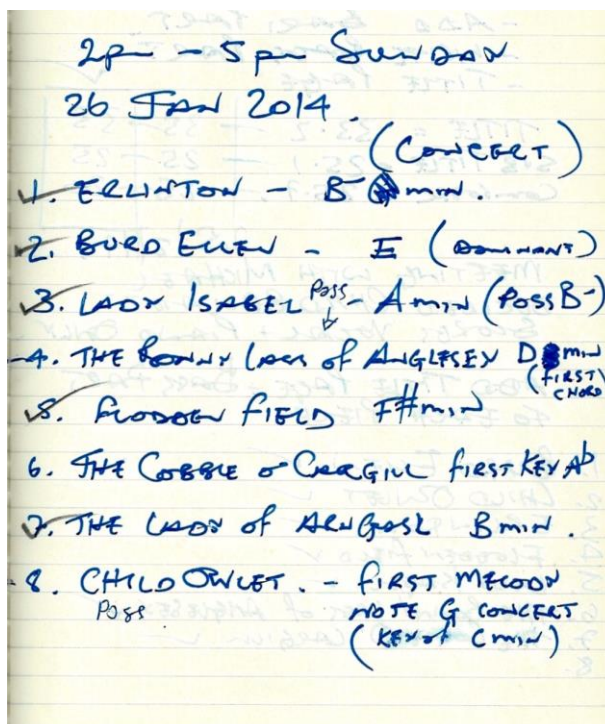 2pm - 5pm SUNDAY
26 JAN 2014.
(CONCERT)
✓1. ERLINTON - B min.
✓2. BURD ELLEN - E (DOMINANT)
✓3. LADY ISABEL Poss - Amin (Poss B-)
-4. THE BONNY LASS OF ANGLESEY D min
(FIRST)
CHORD
✓5. FLODDEN FIELD F#min
6. THE COBBLE O CARGILL FIRST KEY Ab
✓7. THE LADY OF ARNGOSK Bmin.
-8. CHILD OWLET. - FIRST MELODY
Poss NOTE G CONCERT
(KEY OF Cmin)